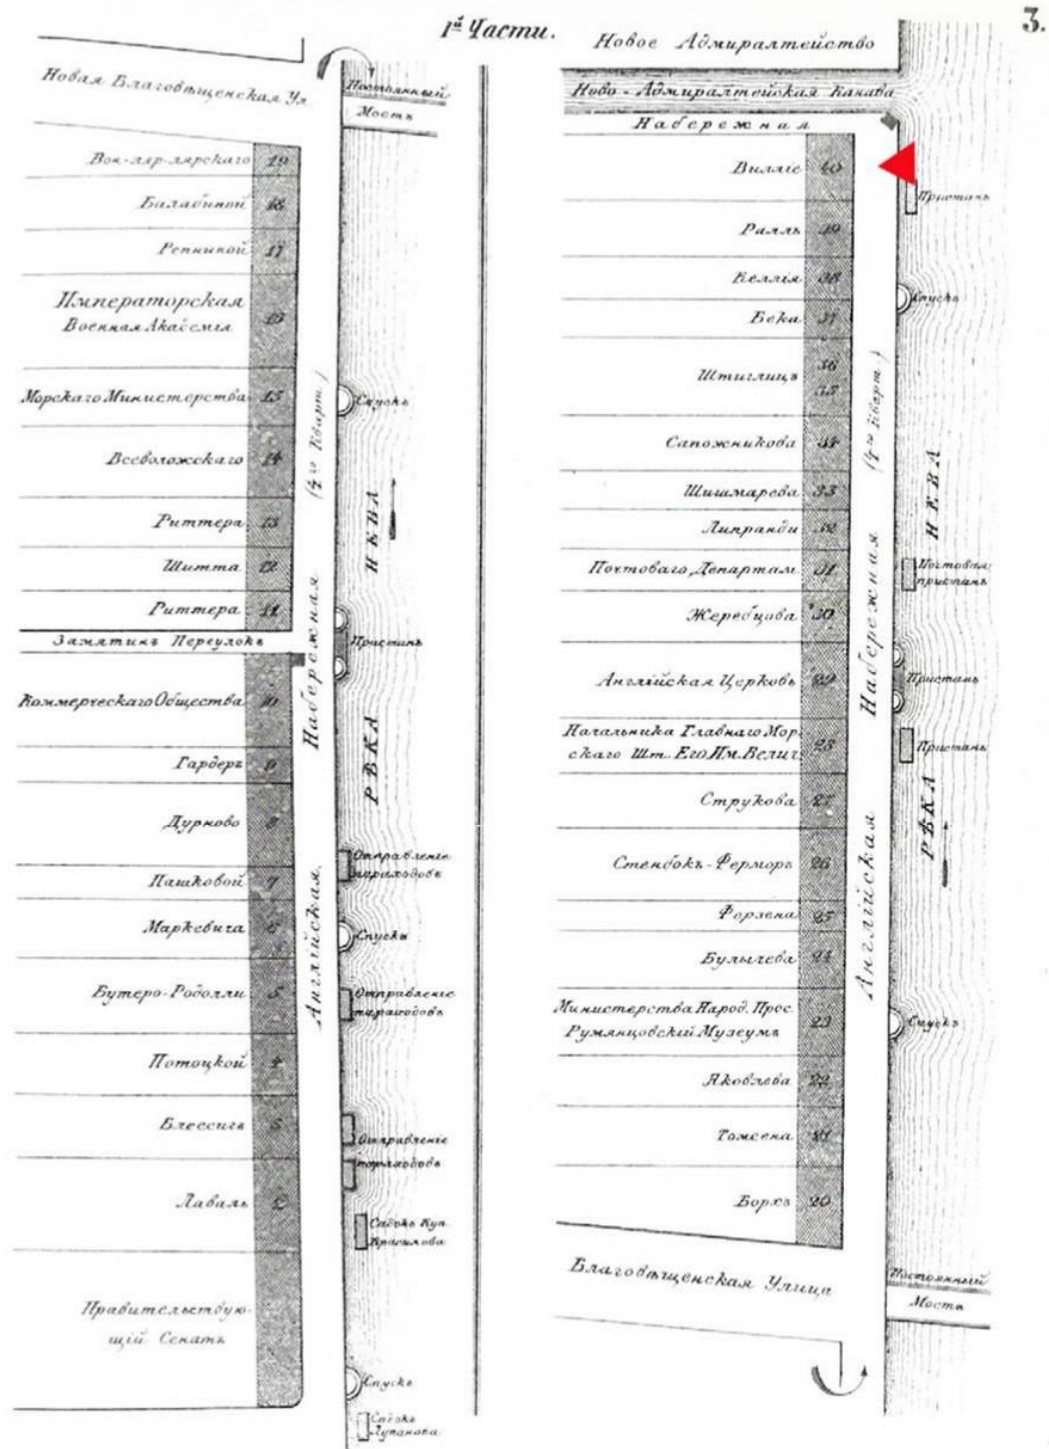 1й Части.
3.
Новая Благовѣщенская Ул.
Постоянный
Мостъ
Вон-ляр-лярскаго 19
Балабиной 18
Репниной 17
Императорская
Военная Академія 16
Морскаго Министерства 15
Всеволожскаго 14
Риттера 13
Шитта 12
Риттера 11
Замятинъ Переулокъ
Коммерческаго Общества 10
Гардеръ 9
Дурново 8
Пашковой 7
Маркевича 6
Бутеро-Родолли 5
Потоцкой 4
Блессигъ
Лаваль 2
Правительствую-
щій Сенатъ
Англійская Набережная
(2го Кварт.)
РѢКА НЕВА
Спускъ
Пристань
Отправленіе
пароходовъ
Спускъ
Отправленіе
пароходовъ
Отправленіе
пароходовъ
Садокъ Куп.
Красилова
Спускъ
Садокъ
Лупанова
Новое Адмиралтейство
Ново-Адмиралтейская Канава
Набережная
Вилліе 40
Ралль 39
Келлія 38
Бека 37
Штиглицъ 36
35
Сапожникова 34
Шишмарева 33
Липранди 32
Почтоваго Департам. 31
Жеребцова 30
Англійская Церковь 29
Начальника Главнаго Мор-
скаго Шт. Его Им. Велич. 28
Струкова 27
Стенбокъ-Ферморъ 26
Ферзена 25
Булычева 24
Министерства Народ. Прос.
Румянцовскій Музеумъ 23
Яковлева 22
Томсена 21
Борхъ 20
Благовѣщенская Улица
Англійская Набережная
РѢКА НЕВА
Пристань
Спускъ
Почтовая
пристань
Пристань
Пристань
Спускъ
Постоянный
Мостъ